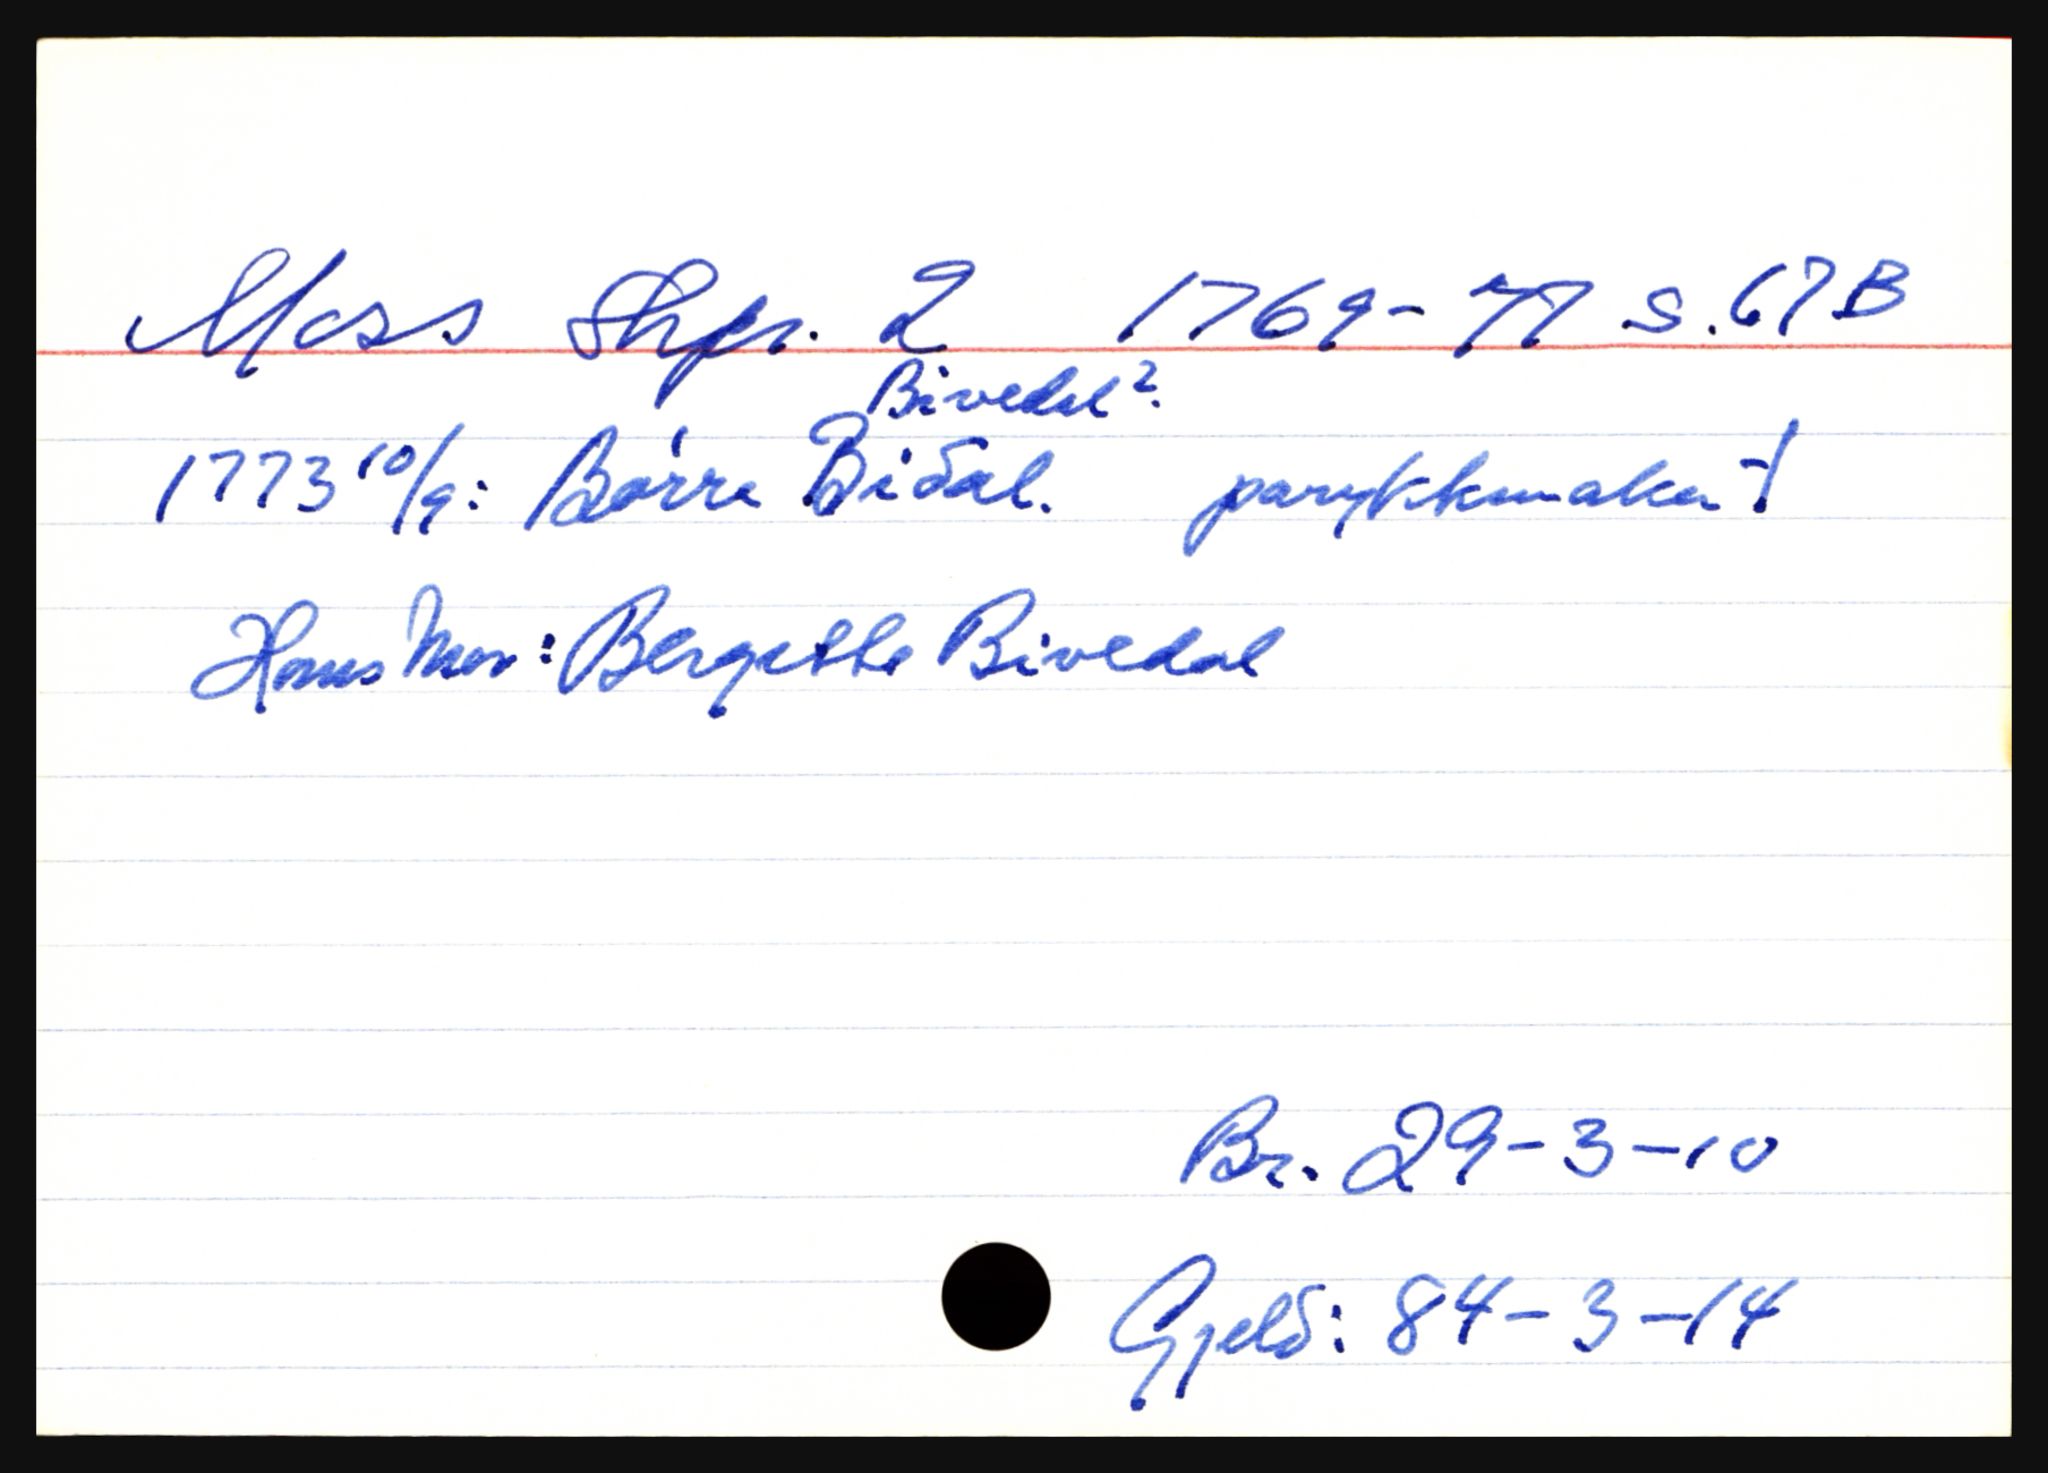 Moss Skpr. 2 1769-77 s. 67B
Bivedal?
1773 10/9: Børre Bidal. parykkmaker †
Hans Mor: Bergitthe Bivedal
Br. 29-3-10
Gjeld: 84-3-14